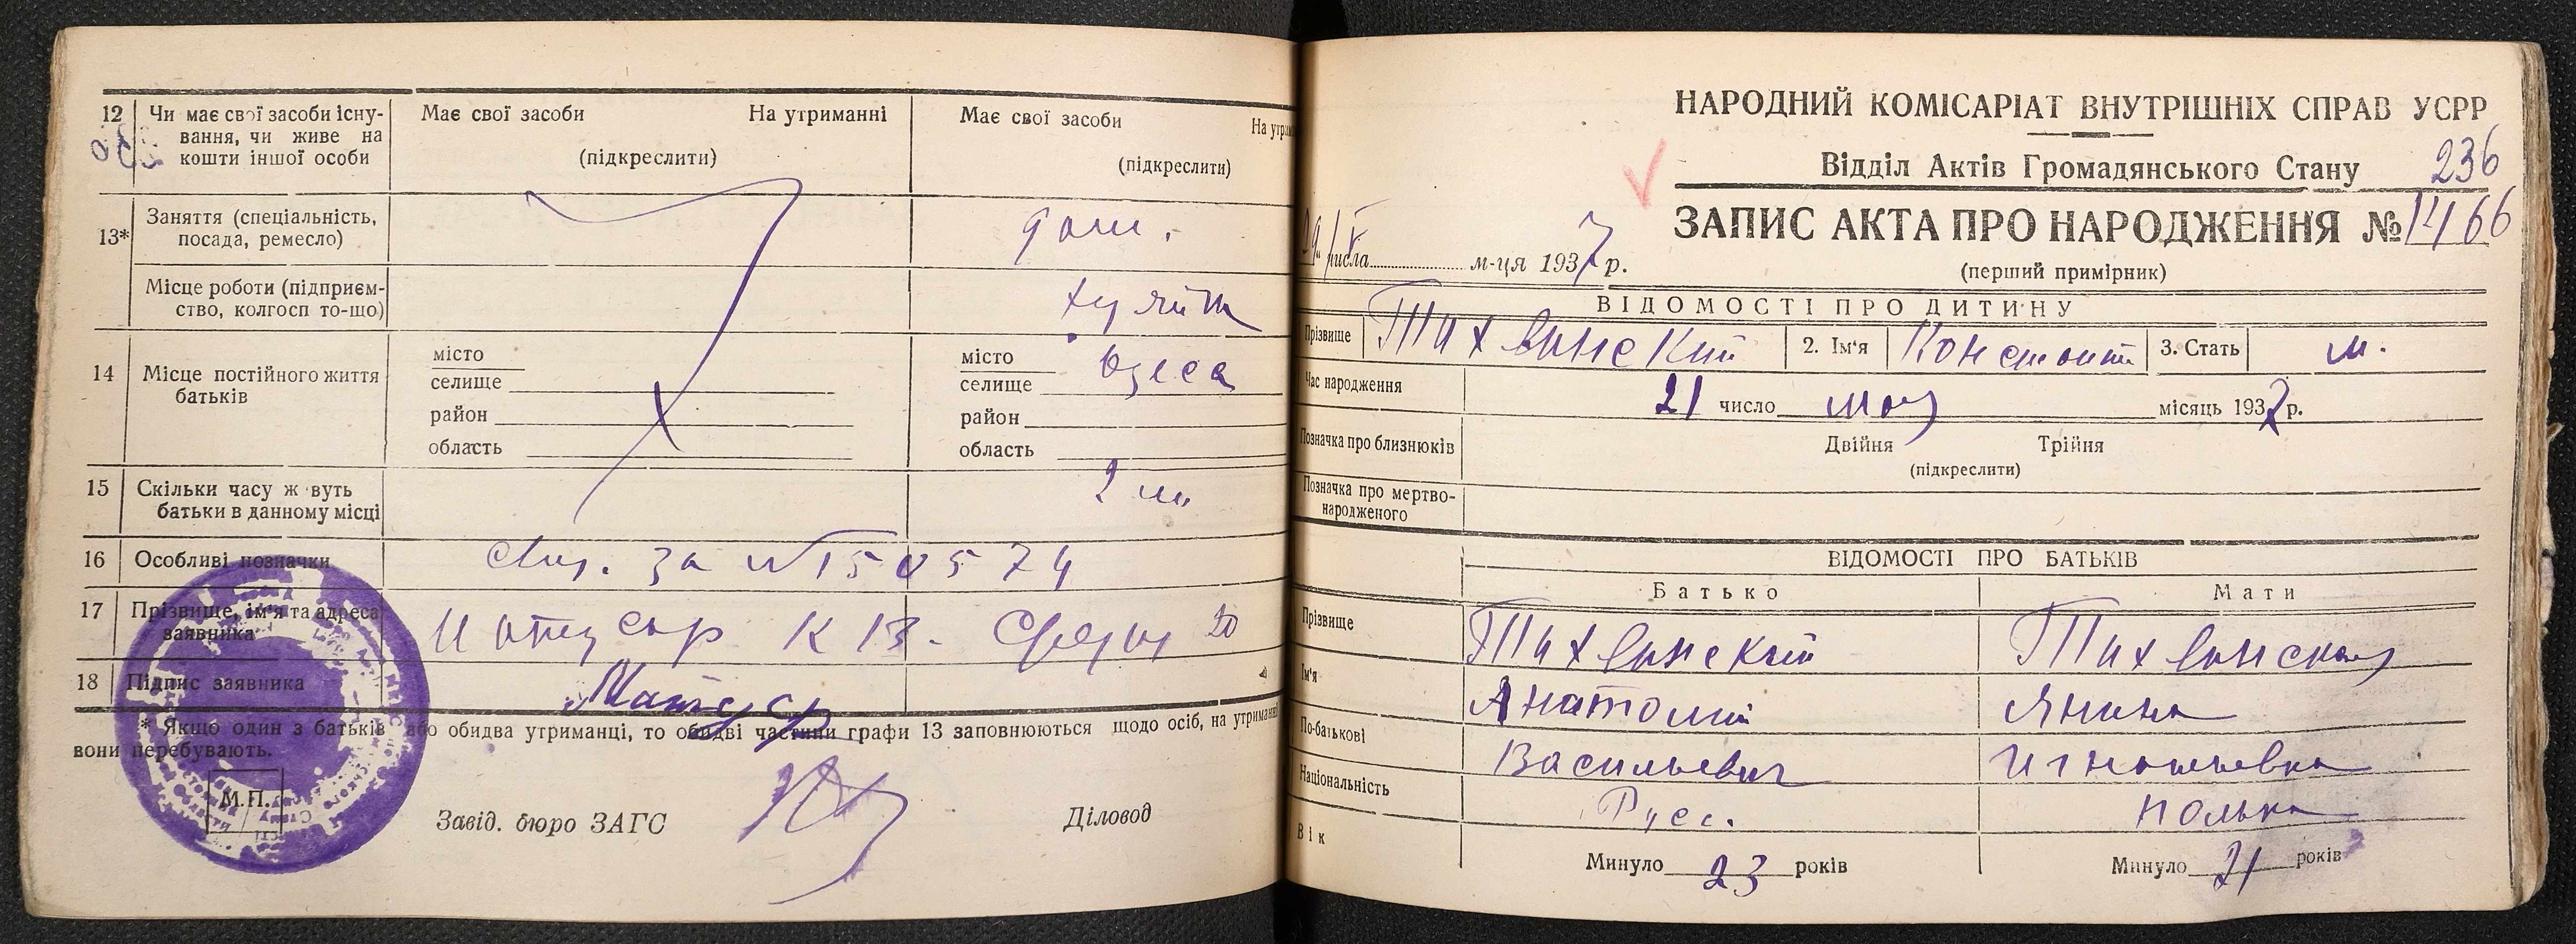 12 Чи має свої засоби існу-
вання, чи живе на
кошти іншої особи
Має свої засоби На утриманні
(підкреслити)
Має свої засоби На утрим
(підкреслити)
13* Заняття (спеціальність,
посада, ремесло)
дом.
Місце роботи (підприєм-
ство, колгосп то-що)
14 Місце постійного життя
батьків
місто
селище
район
область
місто Одеса
селище
район
область
15 Скільки часу ж вуть
батьки в данному місці
16 Особливі позначки
за №150574
17 Прізвище, ім'я та адреса
заявника
18 Підпис заявника
* Якщо один з батьків або обидва утриманці, то обидві частини графи 13 заповнюються щодо осіб, на утриманні
вони перебувають.
М.П.
Завід. бюро ЗАГС Діловод
НАРОДНИЙ КОМІСАРІАТ ВНУТРІШНІХ СПРАВ УСРР
Відділ Актів Громадянського Стану 236
ЗАПИС АКТА ПРО НАРОДЖЕННЯ № 1466
числа м-ця 1937 р.
(перший примірник)
ВІДОМОСТІ ПРО ДИТИНУ
Прізвище Тихвинский 2. Ім'я Константин 3. Стать м.
Час народження 21 число мая місяць 1937 р.
Позначка про близнюків Двійня Трійня
(підкреслити)
Позначка про мертво-
народженого
ВІДОМОСТІ ПРО БАТЬКІВ
Батько Мати
Прізвище Тихвинский Тихвинская
Ім'я Анатолий Янина
По-батькові Васильевич Игнатьевна
Національність Русс. полька
Вік Минуло 23 років Минуло 21 років